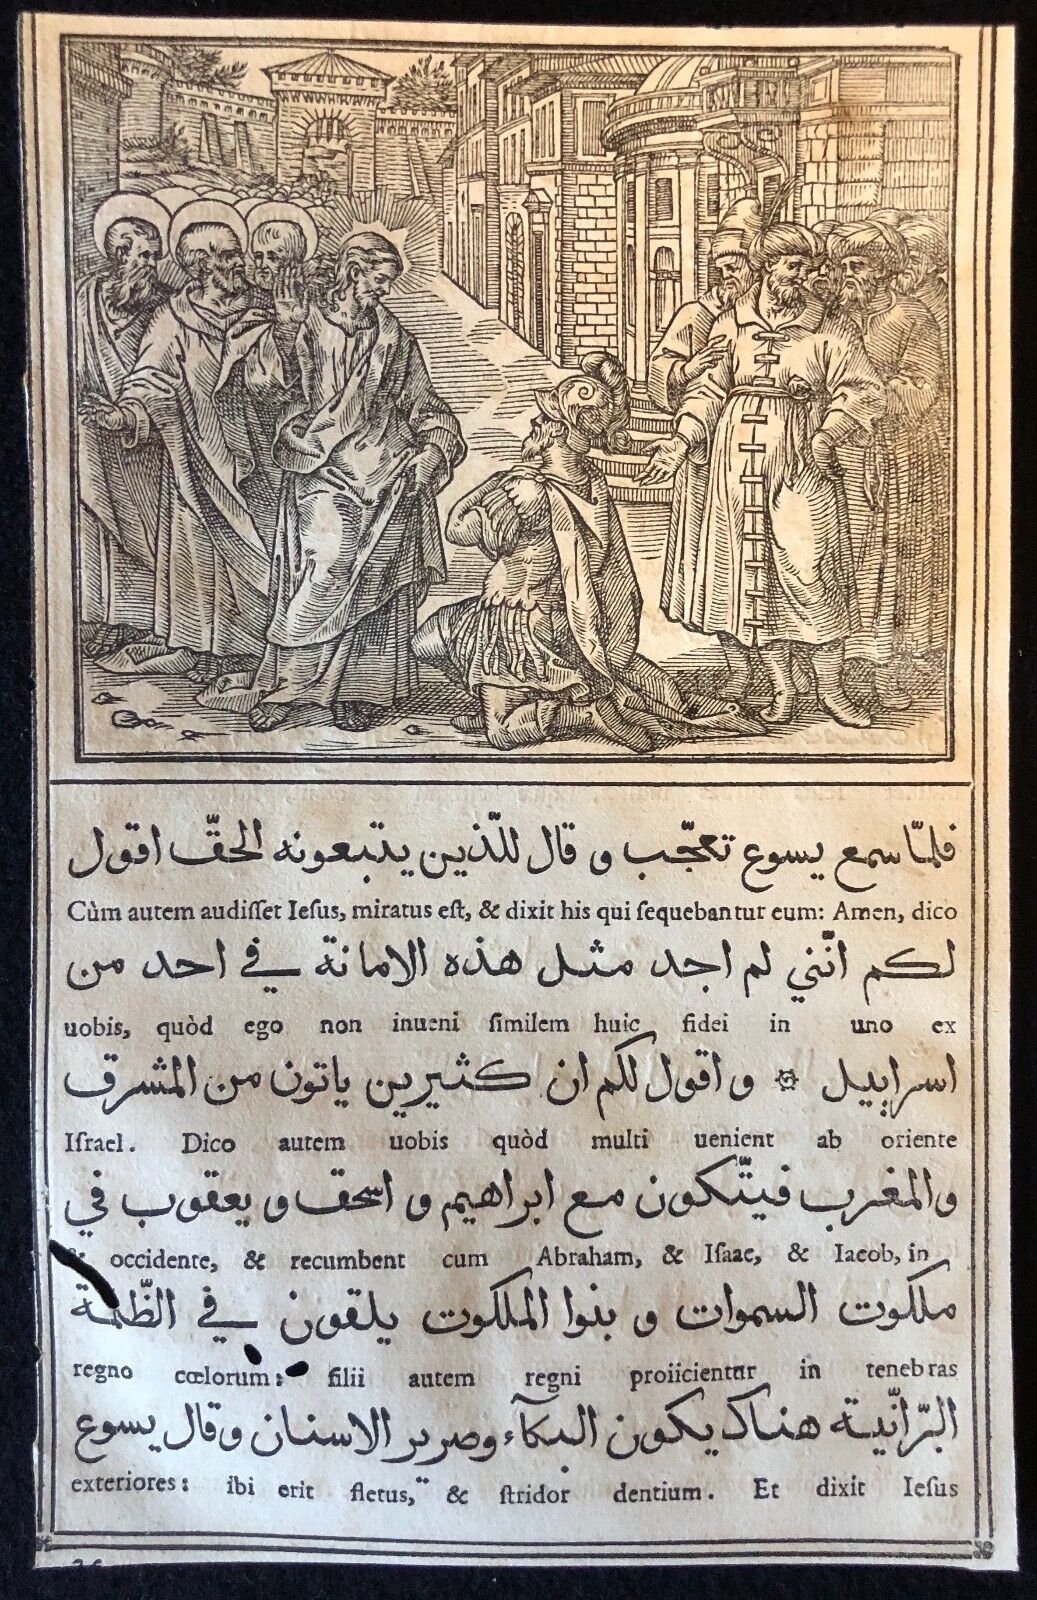 فلمّا سمع يسوع تعجّب و قال للّذين يتبعونه الحقّ اقول
Cùm autem audiſſet Ieſus, miratus eſt, & dixit his qui ſequebantur eum: Amen, dico
لكم انّني لم اجد مثل هذه الامانة في احد من
uobis, quòd ego non inueni ſimilem huic fidei in uno ex
اسراييل ۞ و اقول لكم ان كثيرين ياتون من المشرق
Iſrael. Dico autem uobis quòd multi uenient ab oriente
والمغرب فيتّكون مع ابراهيم و اسحق و يعقوب في
& occidente, & recumbent cum Abraham, & Iſaac, & Iacob, in
ملكوت السموات و بنوا الملكوت يلقون في الظّلمة
regno cœlorum: filii autem regni proiicientur in tenebras
البرّانيّة هناك يكون البكآء وصرير الاسنان وقال يسوع
exteriores: ibi erit fletus, & ſtridor dentium. Et dixit Ieſus